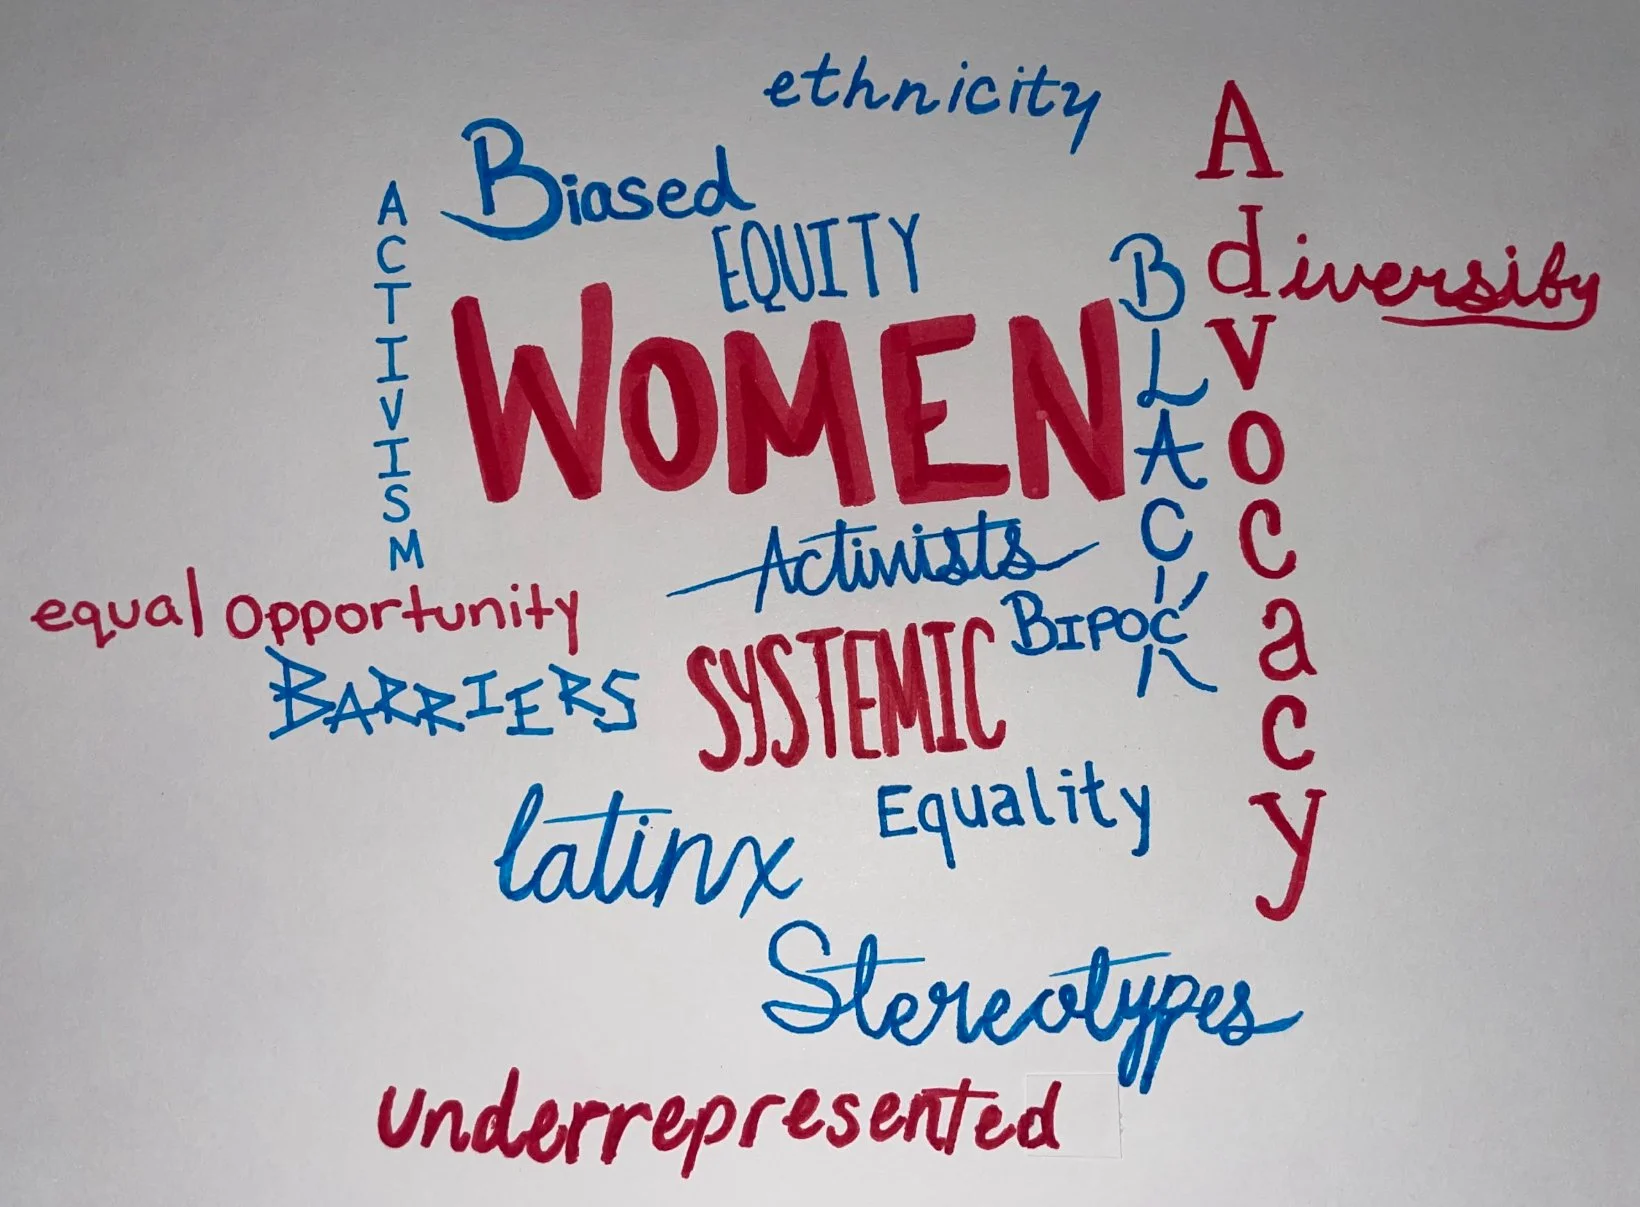 ethnicity
Advocacy
Biased
ACTIVISM
EQUITY
BLACK
diversify
WOMEN
Activists
equal opportunity
BIPOC
SYSTEMIC
BARRIERS
Equality
latinx
Stereotypes
underrepresented